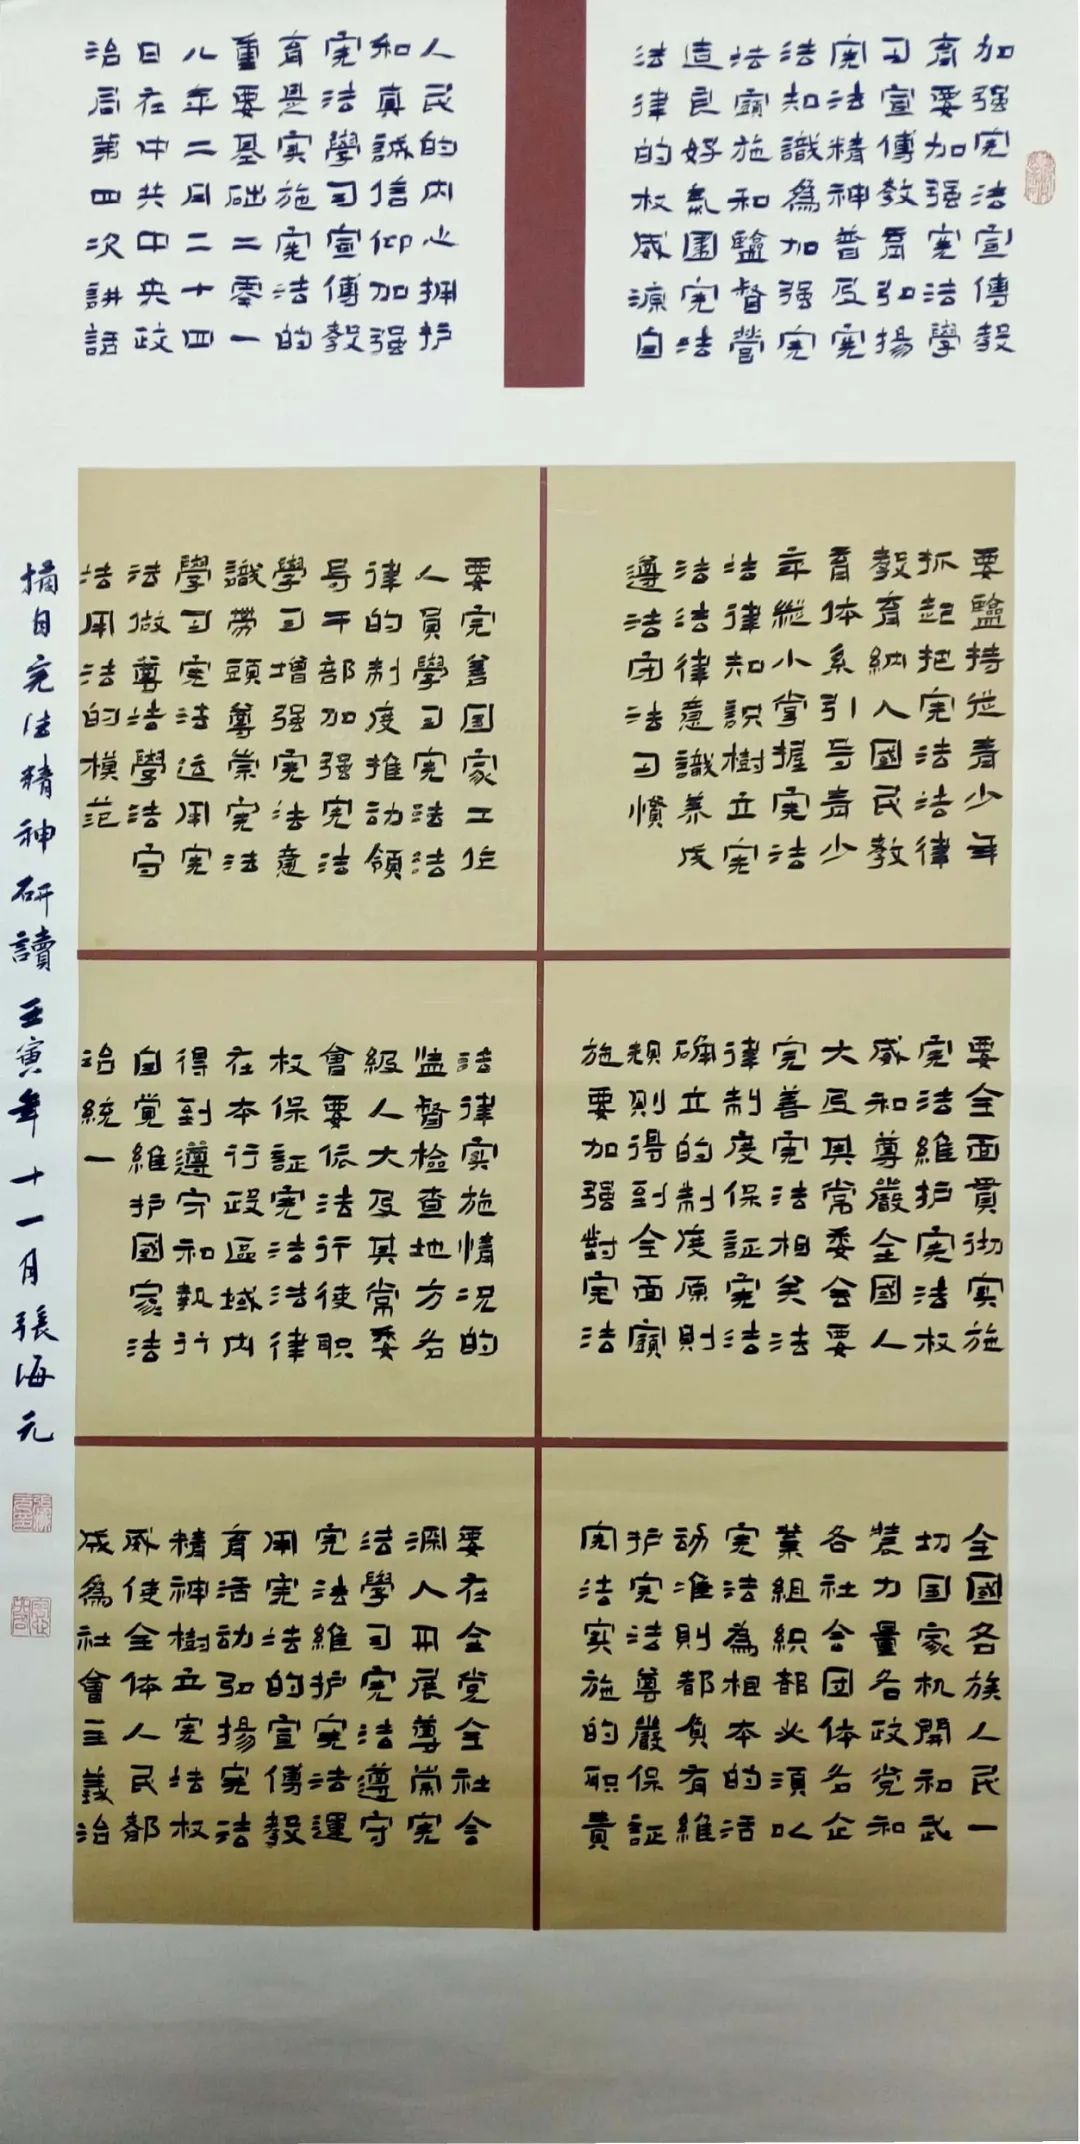 加强宪法宣傳教
育要加强宪法學
习宣傳教育弘揚
宪法精神普及宪
法知識爲加强宪
法實施和監督營
造良好氣圍宪法
法律的权威源自
人民的内心拥护
和真誠信仰加强
宪法學习宣傳教
育是实施宪法的
重要基础二零一
八年二月二十四
日在中共中央政
治局第四次講話
要監持從青少年
抓起把宪法法律
教育納入國民教
育体系引导青少
年從小掌握宪法
法律知識樹立宪
法法律意識养成
遵法守法习慣
要完善国家工作
人員學习宪法法
律的制度推动領
导干部加强宪法
學习增强宪法意
識帶頭尊崇宪法
學习宪法运用宪
法做尊法學法守
法用法的模范
要全面貫彻实施
宪法維护宪法权
威和尊嚴全國人
大及其常委会要
完善宪法相关法
律制度保証宪法
确立的制度原則
規則得到全面實
施要加强對宪法
法律实施情况的
監督检查地方各
級人大及其常委
會要依法行使职
权保証宪法法律
在本行政區域内
得到遵守和執行
自觉維护國家法
治統一
全國各族人民一
切国家机関和武
装力量各政党和
各社会团体各企
業組織都必須以
宪法為根本的活
动准則都負有維
护宪法尊嚴保証
宪法实施的职責
要在全党全社会
深入开展尊崇宪
法學习宪法遵守
宪法維护宪法運
用宪法的宣傳教
育活动弘揚宪法
精神樹立宪法权
威使全体人民都
成爲社會主義治
摘自宪法精神研讀 壬寅年十一月張海元